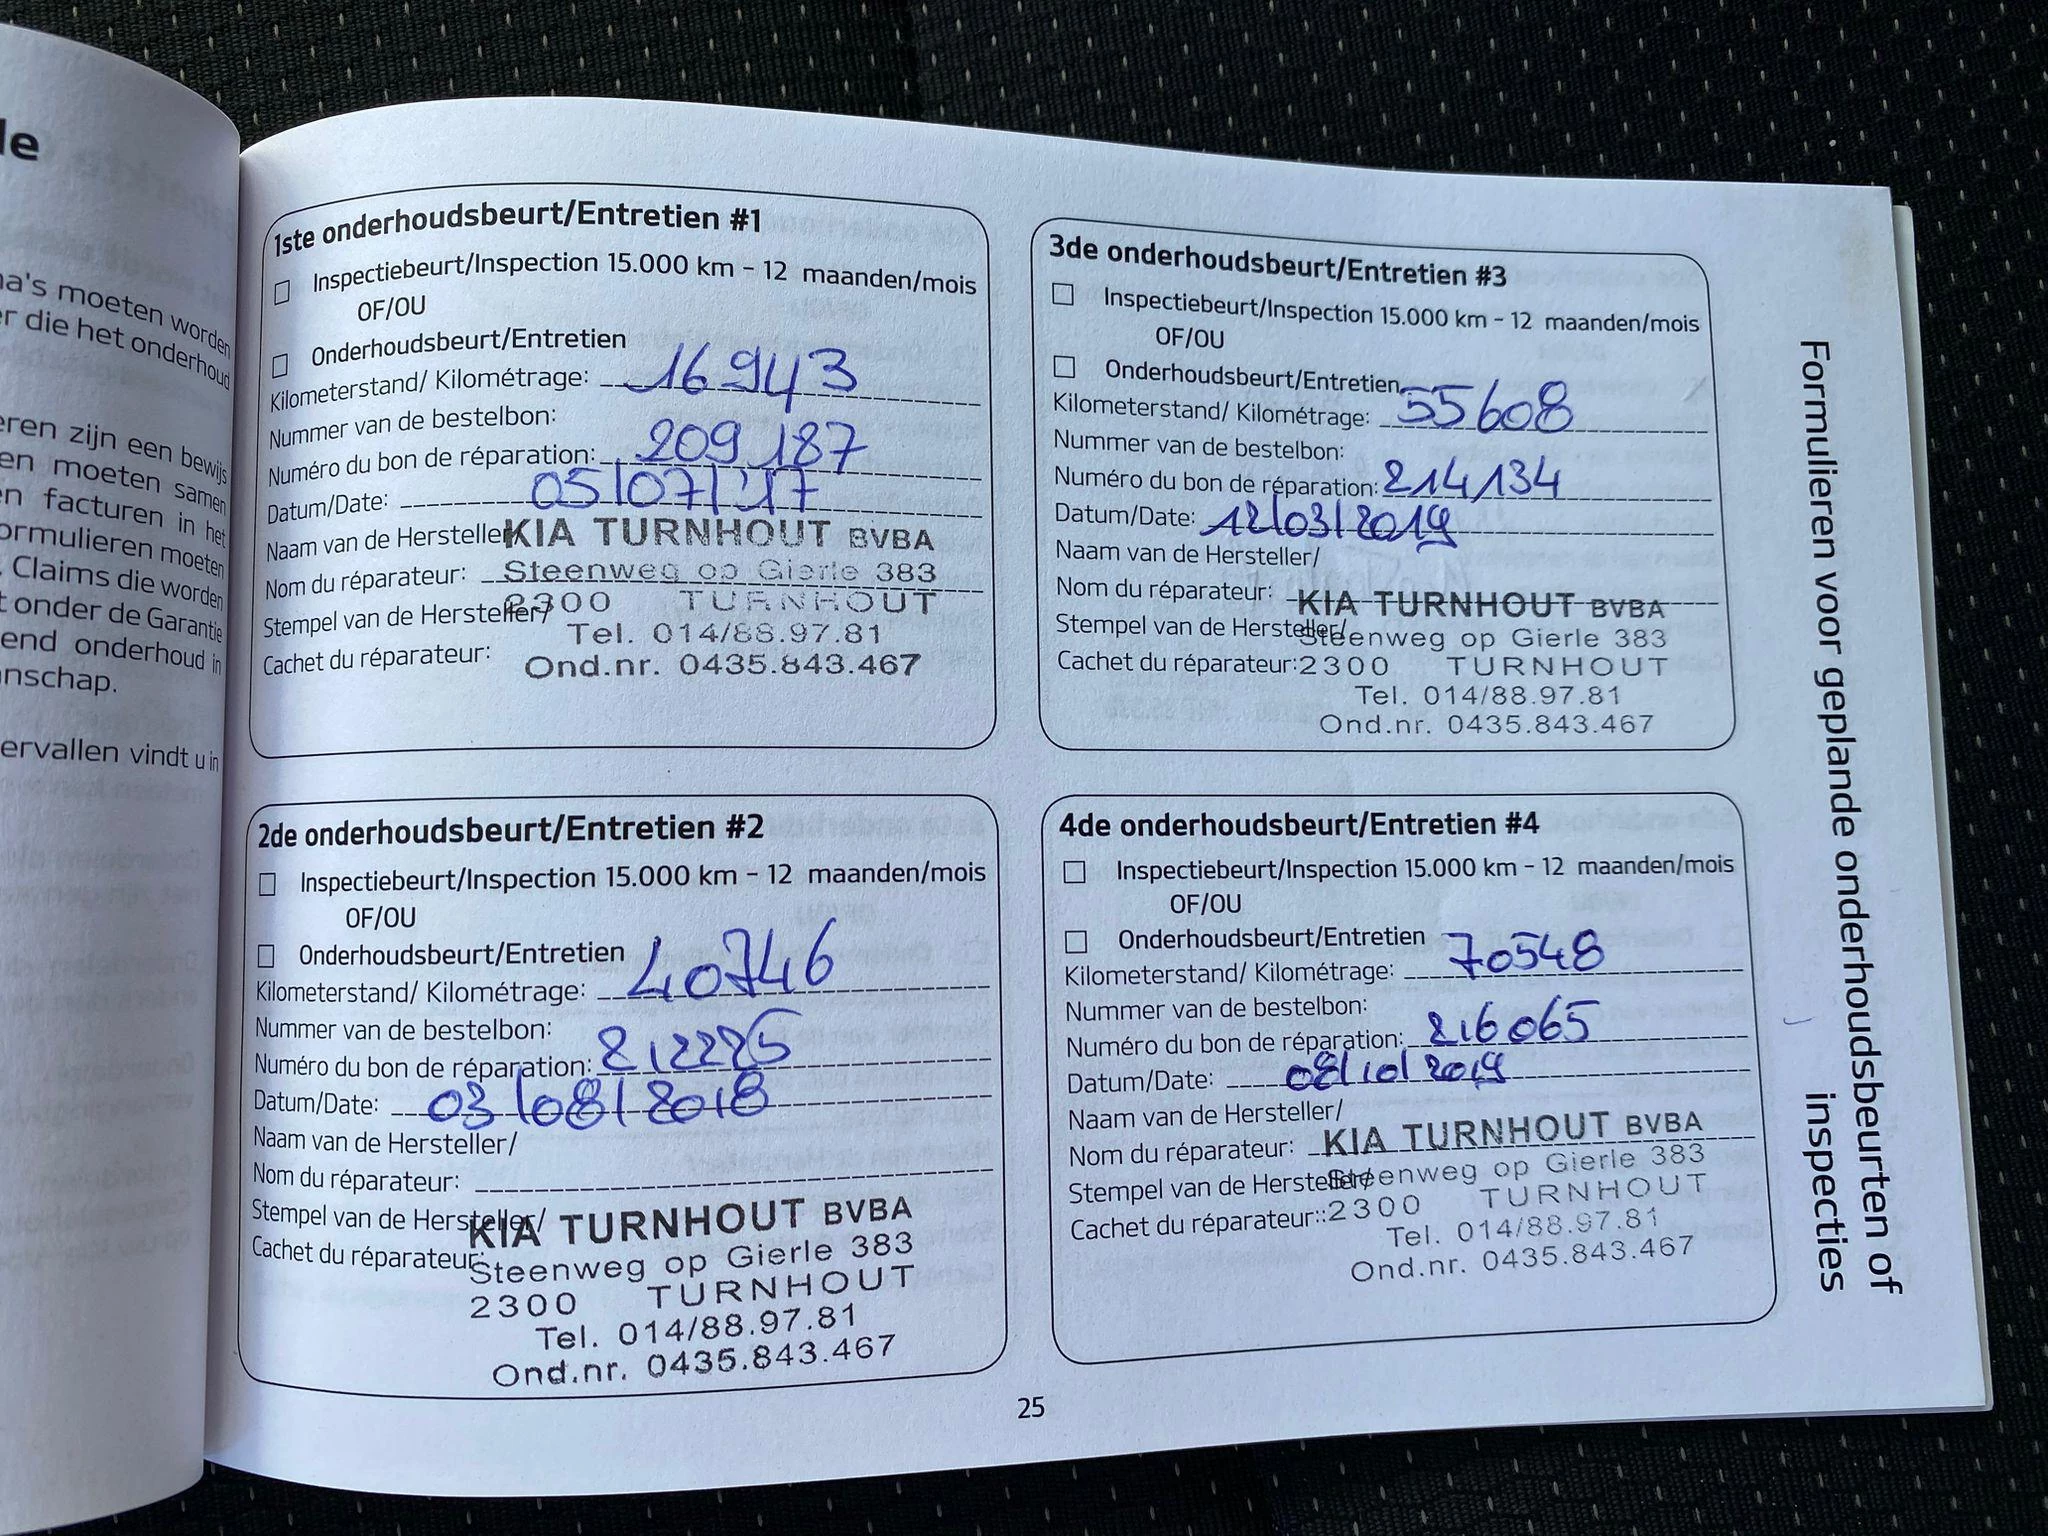 le
na's moeten worden
r die het onderhoud
eren zijn een bewijs
en moeten samen
n facturen in het
ormulieren moeten
. Claims die worden
t onder de Garantie
end onderhoud in
nschap.
ervallen vindt u in
1ste onderhoudsbeurt/Entretien #1
Inspectiebeurt/Inspection 15.000 km - 12 maanden/mois
OF/OU
Onderhoudsbeurt/Entretien
Kilometerstand/ Kilométrage: 16943
Nummer van de bestelbon:
Numéro du bon de réparation: 209187
Datum/Date: 05/07/'17
Naam van de Hersteller/
Nom du réparateur:
Stempel van de Hersteller/
Cachet du réparateur:
KIA TURNHOUT BVBA
Steenweg op Gierle 383
2300 TURNHOUT
Tel. 014/88.97.81
Ond.nr. 0435.843.467
2de onderhoudsbeurt/Entretien #2
Inspectiebeurt/Inspection 15.000 km - 12 maanden/mois
OF/OU
Onderhoudsbeurt/Entretien
Kilometerstand/ Kilométrage: 40746
Nummer van de bestelbon:
Numéro du bon de réparation: 212225
Datum/Date: 03/08/2018
Naam van de Hersteller/
Nom du réparateur:
Stempel van de Hersteller/
Cachet du réparateur:
KIA TURNHOUT BVBA
Steenweg op Gierle 383
2300 TURNHOUT
Tel. 014/88.97.81
Ond.nr. 0435.843.467
3de onderhoudsbeurt/Entretien #3
Inspectiebeurt/Inspection 15.000 km - 12 maanden/mois
OF/OU
Onderhoudsbeurt/Entretien
Kilometerstand/ Kilométrage: 55608
Nummer van de bestelbon:
Numéro du bon de réparation: 214134
Datum/Date: 12/03/2019
Naam van de Hersteller/
Nom du réparateur:
Stempel van de Hersteller/
Cachet du réparateur:
KIA TURNHOUT BVBA
Steenweg op Gierle 383
2300 TURNHOUT
Tel. 014/88.97.81
Ond.nr. 0435.843.467
4de onderhoudsbeurt/Entretien #4
Inspectiebeurt/Inspection 15.000 km - 12 maanden/mois
OF/OU
Onderhoudsbeurt/Entretien
Kilometerstand/ Kilométrage: 70548
Nummer van de bestelbon:
Numéro du bon de réparation: 216065
Datum/Date: 08/10/2019
Naam van de Hersteller/
Nom du réparateur:
Stempel van de Hersteller/
Cachet du réparateur:
KIA TURNHOUT BVBA
Steenweg op Gierle 383
2300 TURNHOUT
Tel. 014/88.97.81
Ond.nr. 0435.843.467
Formulieren voor geplande onderhoudsbeurten of
inspecties
25